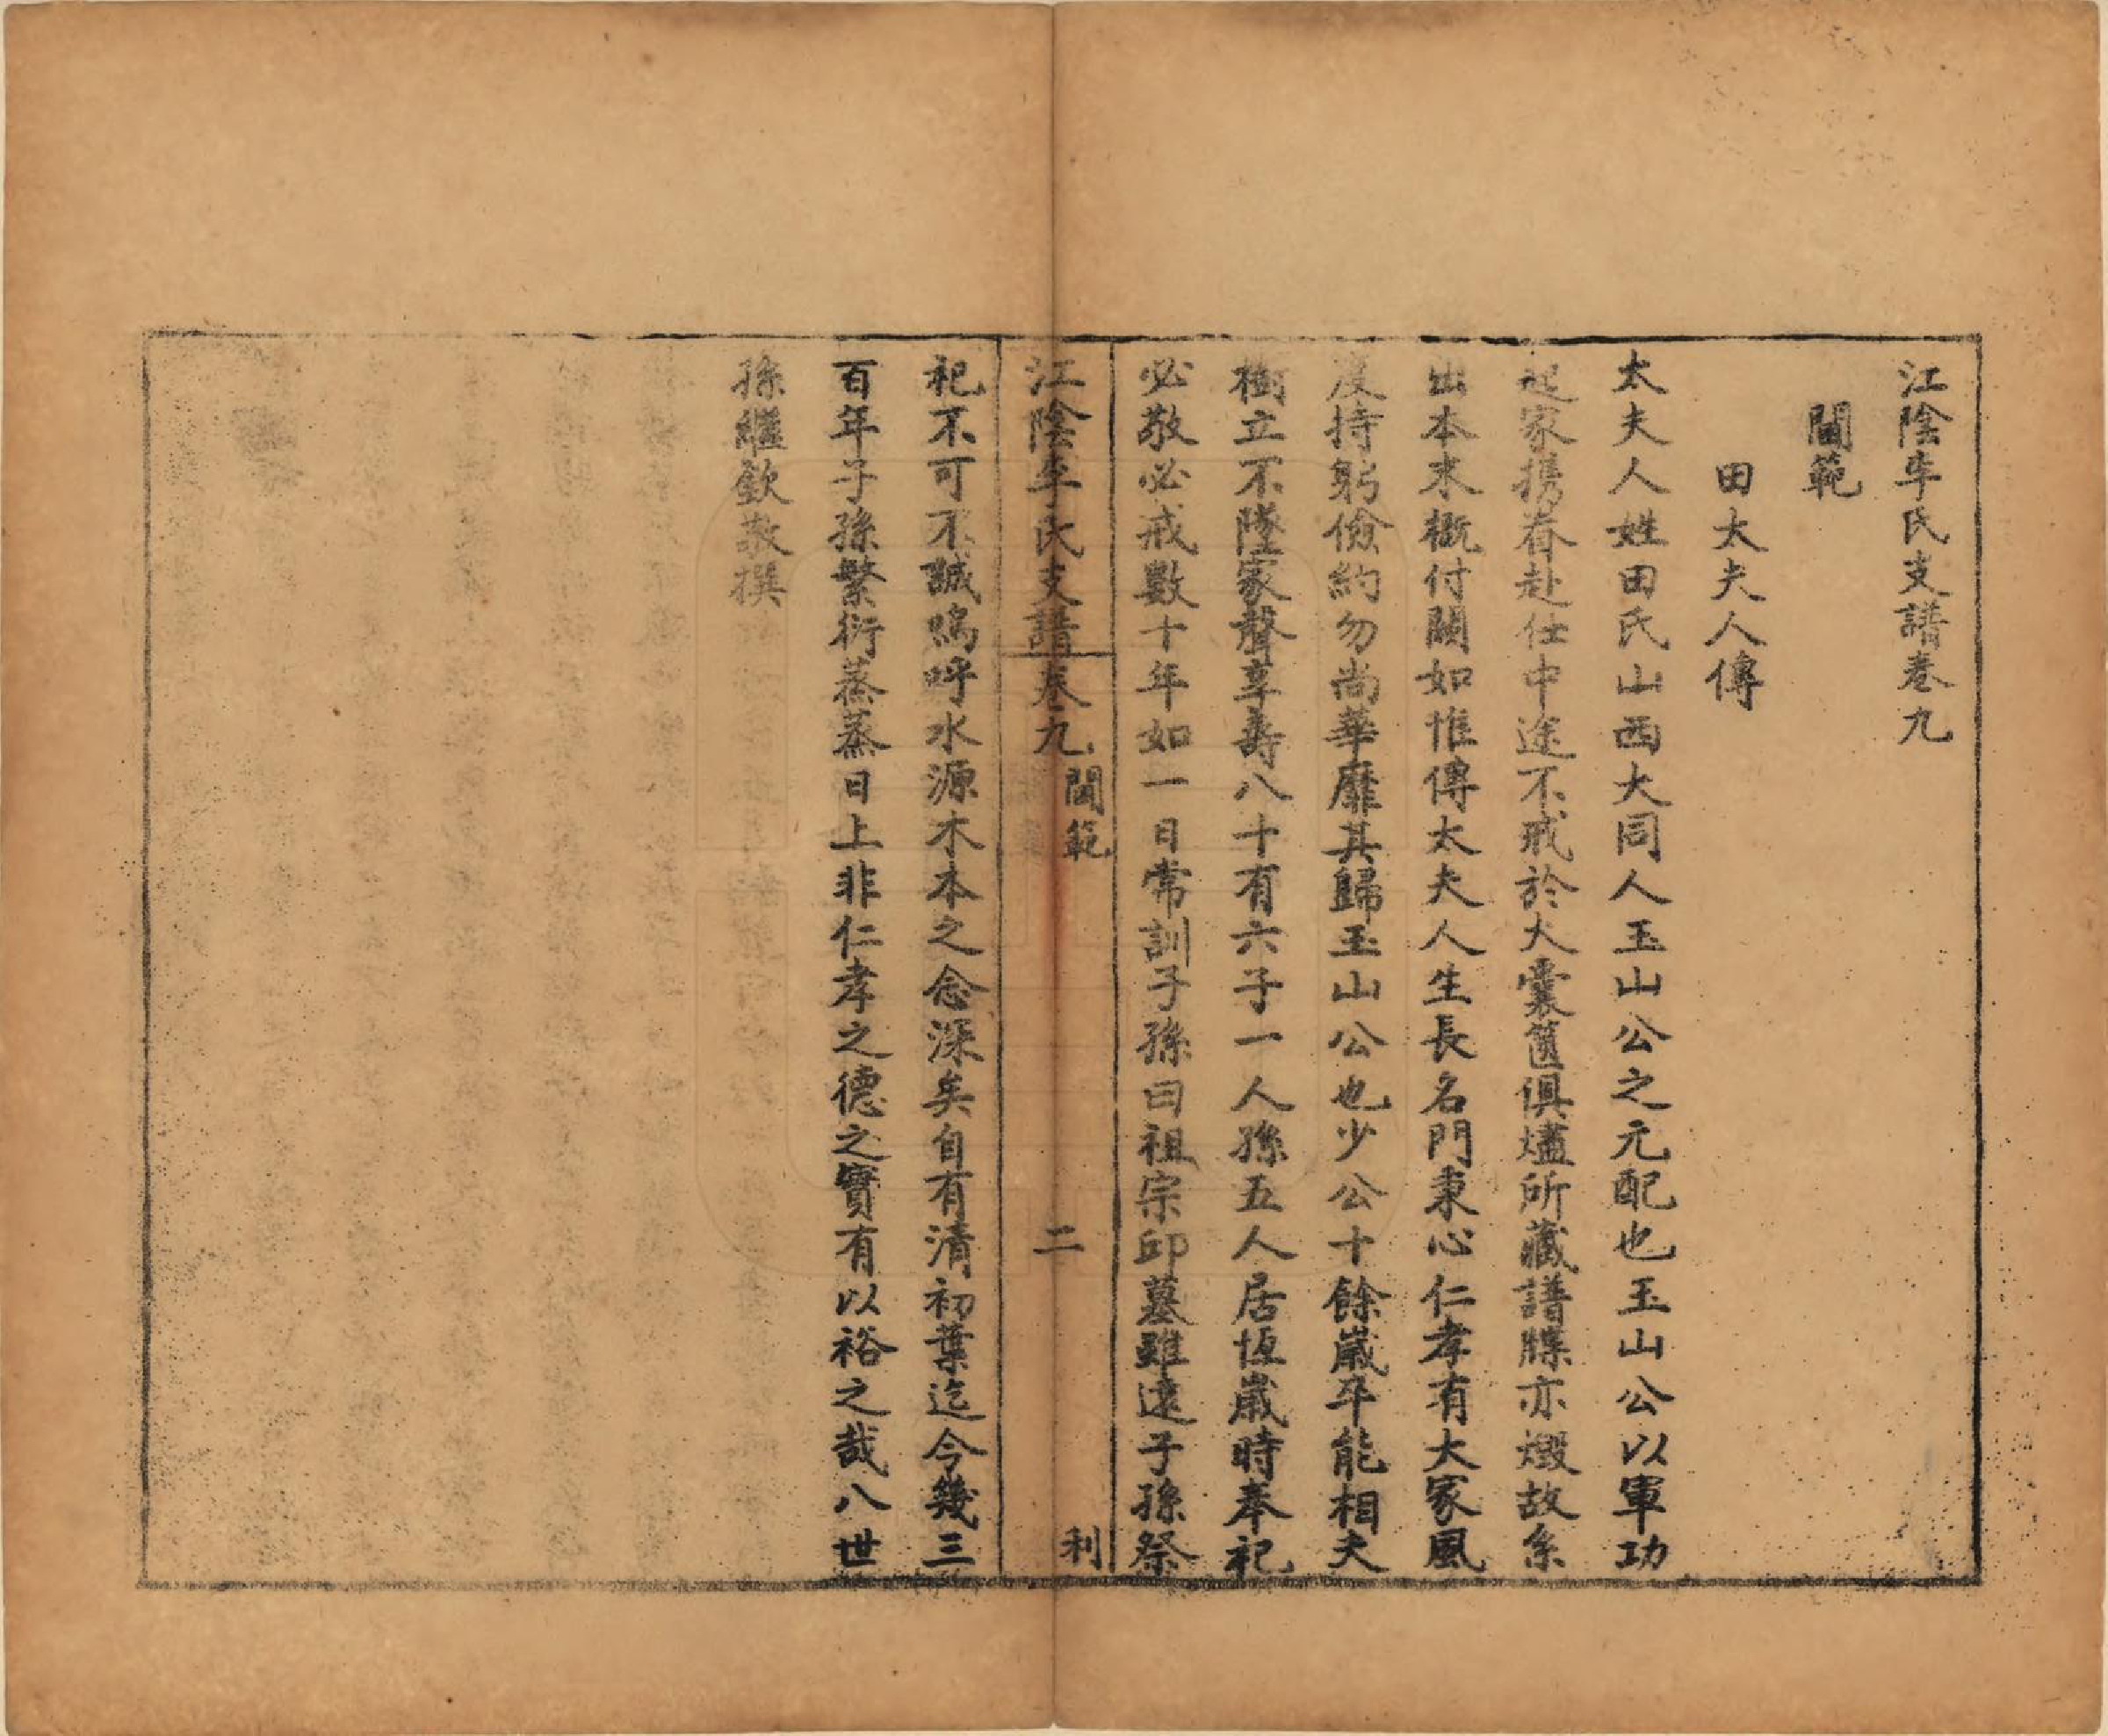 江陰牟氏支譜卷九
閫範
田太夫人傳
太夫人姓田氏山西大同人玉山公之元配也玉山公以軍功
起家携眷赴仕中途不戒於火囊篋俱燼所藏譜牒亦燬故系
出本末概付闕如惟傳太夫人生長名門秉心仁孝有大家風
度持躬儉約勿尚華靡其歸玉山公也少公十餘歲卒能相夫
樹立不墜家聲享壽八十有六子一人孫五人居恆歲時奉祀
必敬必戒數十年如一日常訓子孫曰祖宗邱墓雖遠子孫祭
江陰牟氏支譜卷九 閫範 二 利
祀不可不誠嗚呼水源木本之念深矣自有清初葉迄今幾三
百年子孫繁衍蒸蒸日上非仁孝之德之實有以裕之哉八世
孫繼欽敬撰